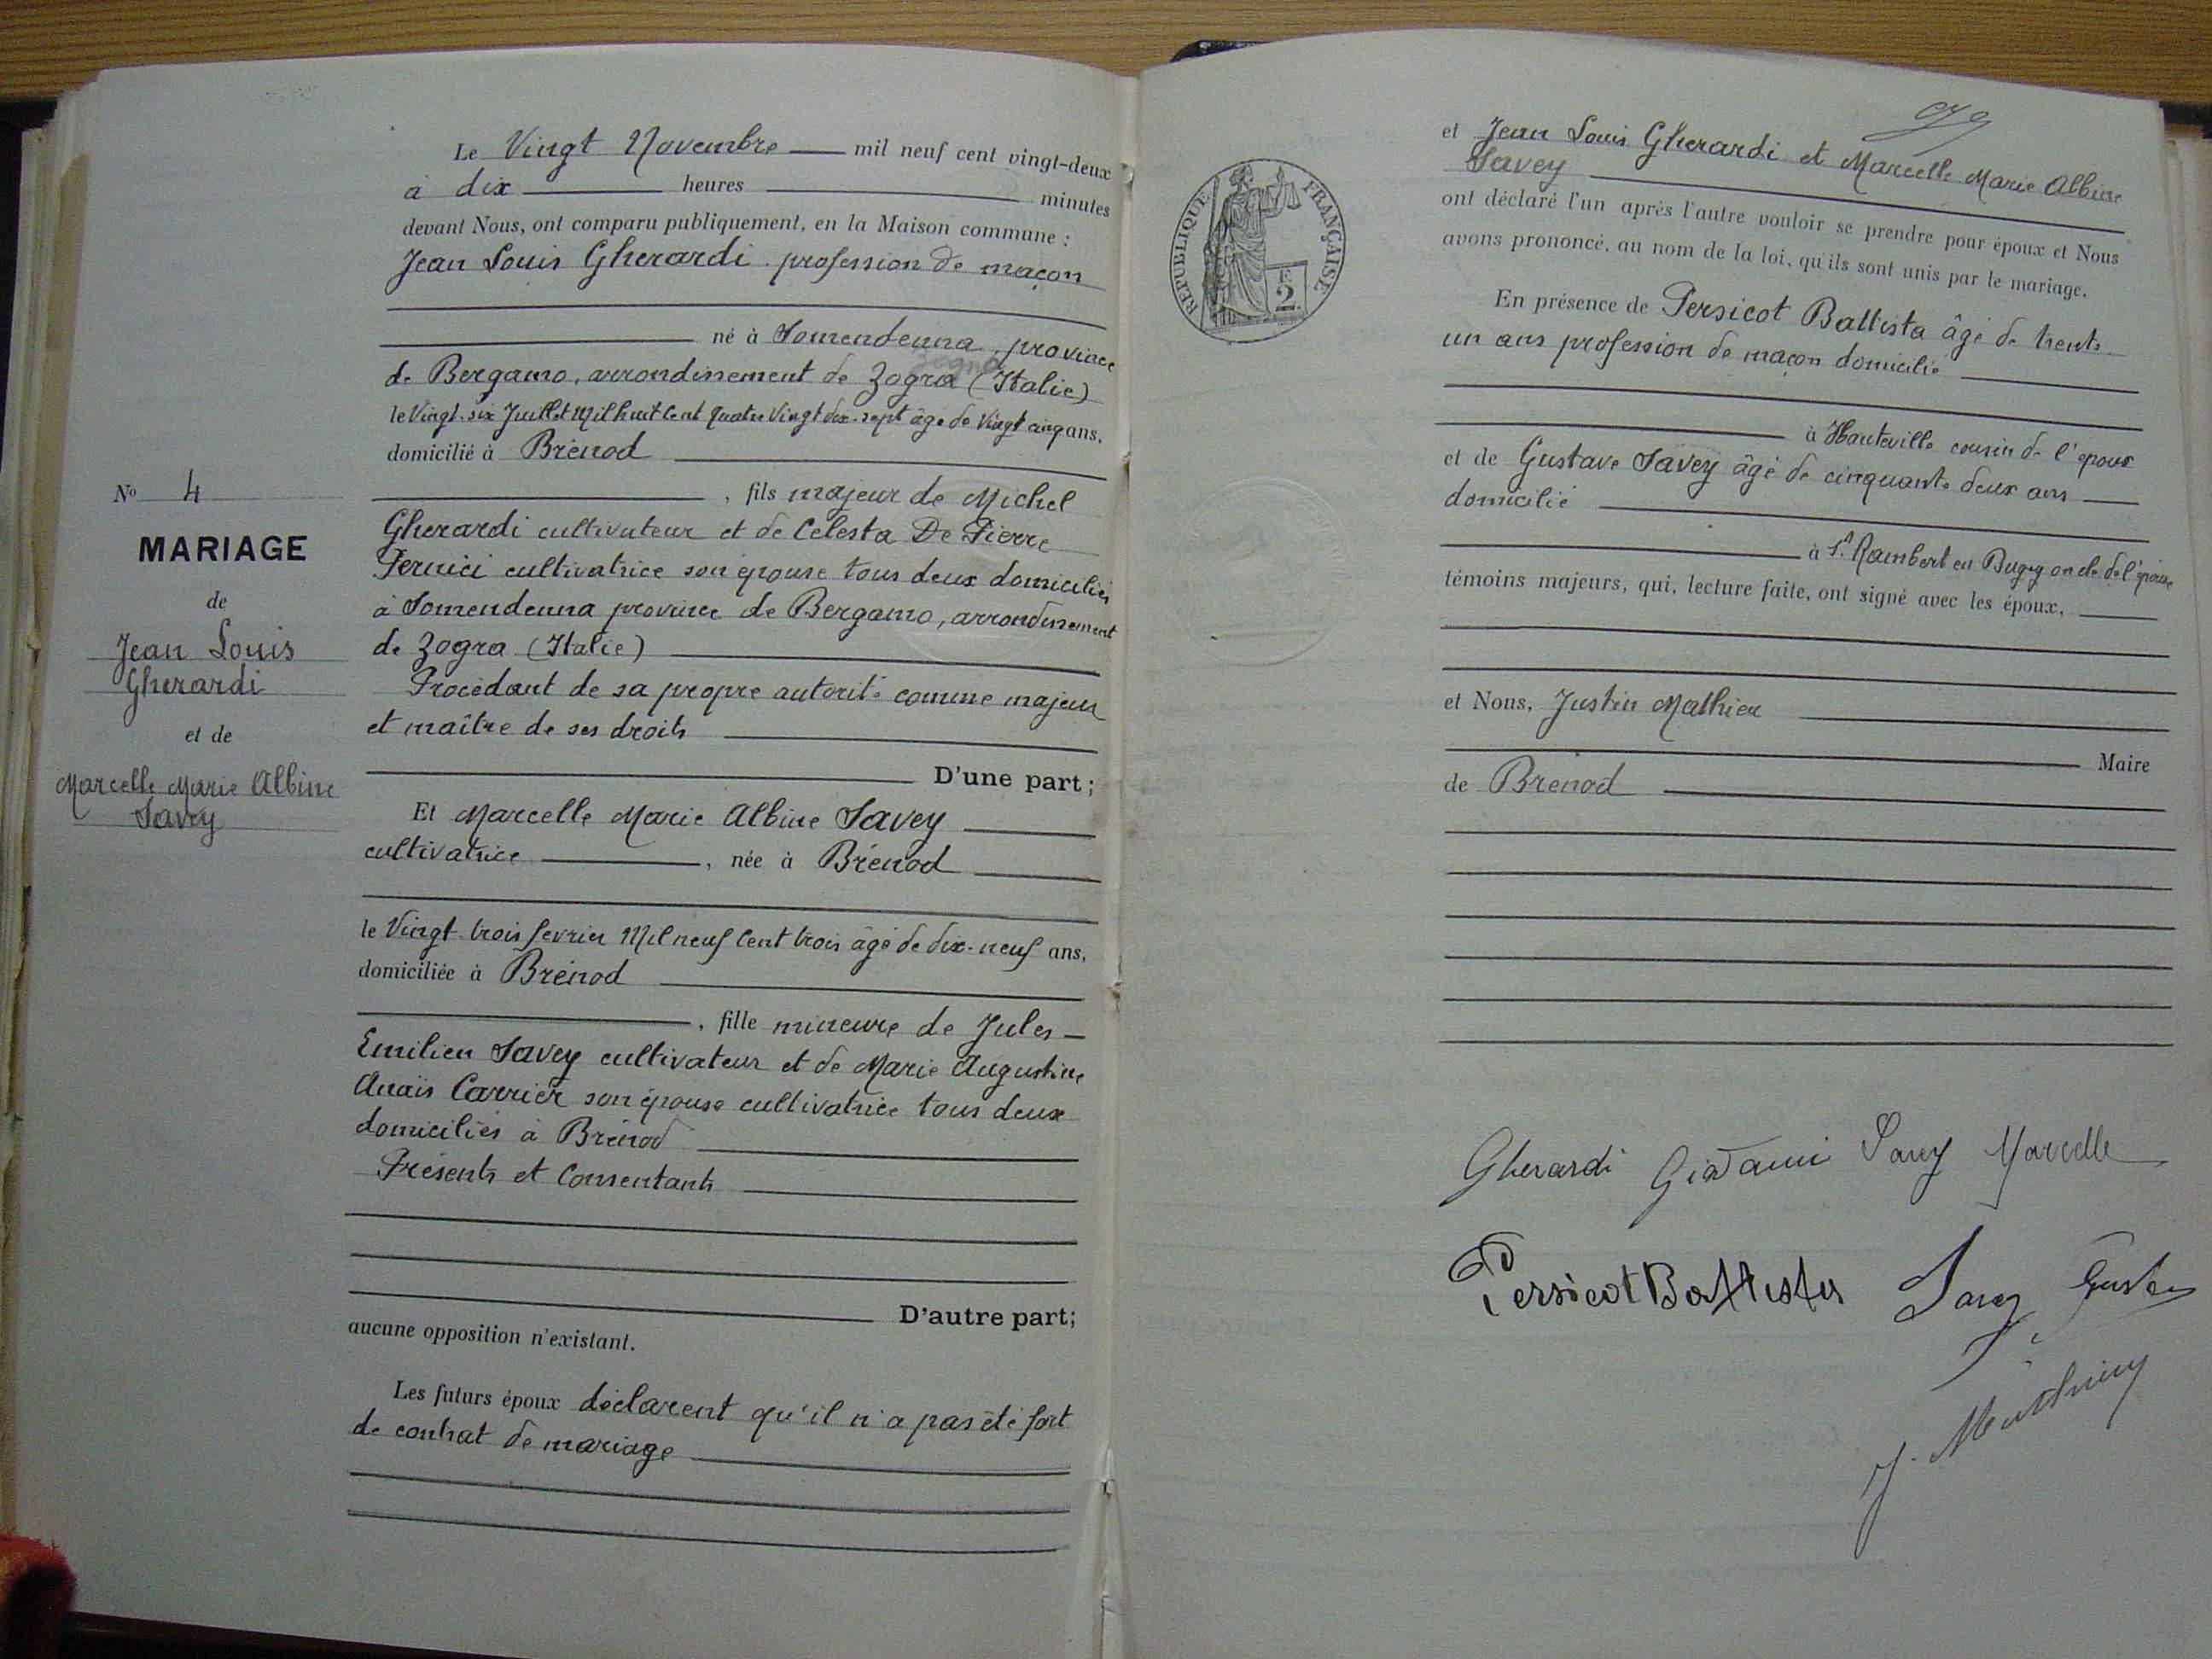 Le Vingt Novembre mil neuf cent vingt-deux
à dix heures minutes
devant Nous, ont comparu publiquement, en la Maison commune :
Jean Louis Gherardi profession de maçon
né à Somendenna, province
Zogno
de Bergamo, arrondissement de Zogra (Italie)
le Vingt-six Juillet Mil huit Cent Quatre Vingt dix-sept âgé de Vingt cinq ans,
domicilié à Brénod
, fils majeur de Michel
Gherardi cultivateur et de Celesta De Pierre
Pernici cultivatrice son épouse tous deux domiciliés
à Somendenna province de Bergamo, arrondissement
de Zogra (Italie)
Procédant de sa propre autorité comme majeur
et maître de ses droits
D'une part ;
Et Marcelle Marie Albine Savey
cultivatrice , née à Brénod
le Vingt-trois fevrier Mil neuf Cent trois âgé de dix-neuf ans,
domiciliée à Brénod
, fille mineure de Jules
Emilien Savey cultivateur et de Marie Augustine
Anaïs Carrier son épouse cultivatrice tous deux
domiciliés à Brénod
Présents et Consentants
D'autre part;
aucune opposition n'existant.
Les futurs époux déclarent qu'il n'a pas été fait
de contrat de mariage
No 4
MARIAGE
de
Jean Louis
Gherardi
et de
Marcelle Marie Albine
Savey
RÉPUBLIQUE FRANÇAISE
F.
2
et Jean Louis Gherardi et Marcelle Marie Albine
Savey
ont déclaré l'un après l'autre vouloir se prendre pour époux et Nous
avons prononcé, au nom de la loi, qu'ils sont unis par le mariage.
En présence de Persicot Battista âgé de trente
un ans profession de maçon domicilié
à Hauteville cousin de l'époux
et de Gustave Savey âgé de cinquante deux ans
domicilié
à St Rambert en Bugey oncle de l'épouse
témoins majeurs, qui, lecture faite, ont signé avec les époux,
et Nous, Justin Mathieu
Maire
de Brénod
Gherardi Giovanni Savey Marcelle
Persicot Battista Savey Gustave
J. Mathieu